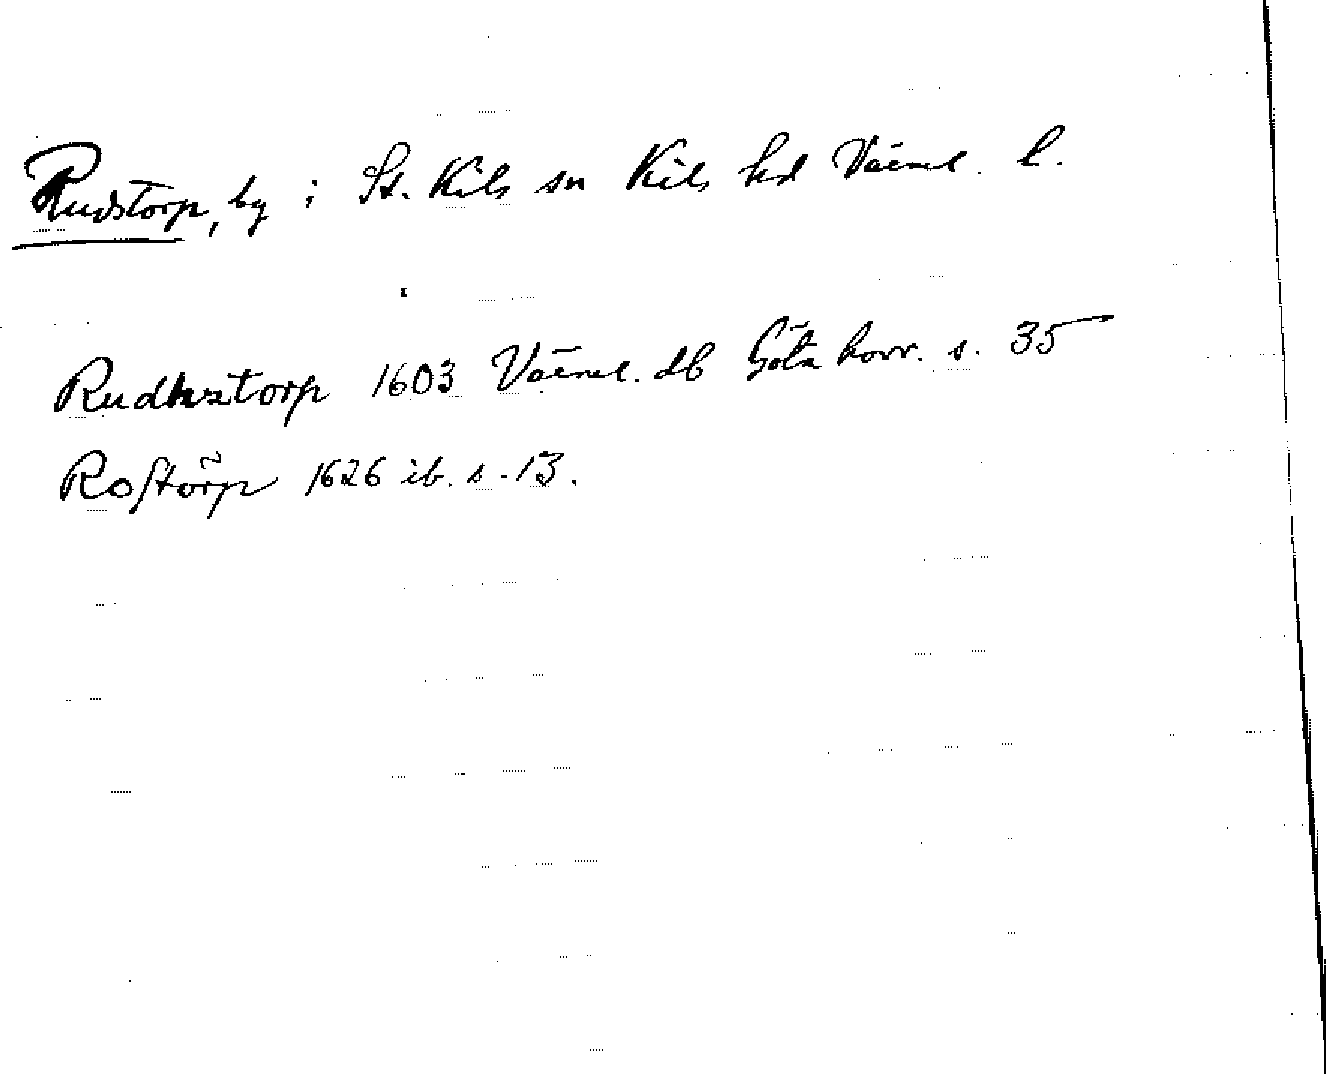 Rudstorp, by i St. Kils sn Kils hd Värml. l.
Rudhztorp 1603 Värml. db Göta hovr. s. 35
Rostörp 1626 ib. s. 13.